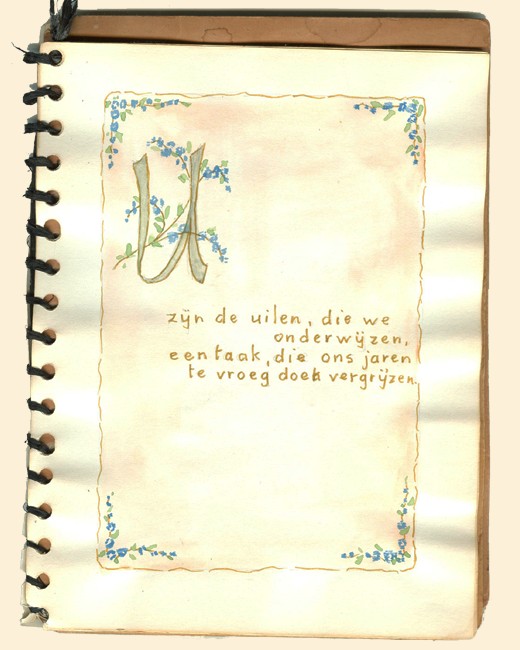 U
zijn de uilen, die we
onderwijzen,
een taak, die ons jaren
te vroeg doet vergrijzen.